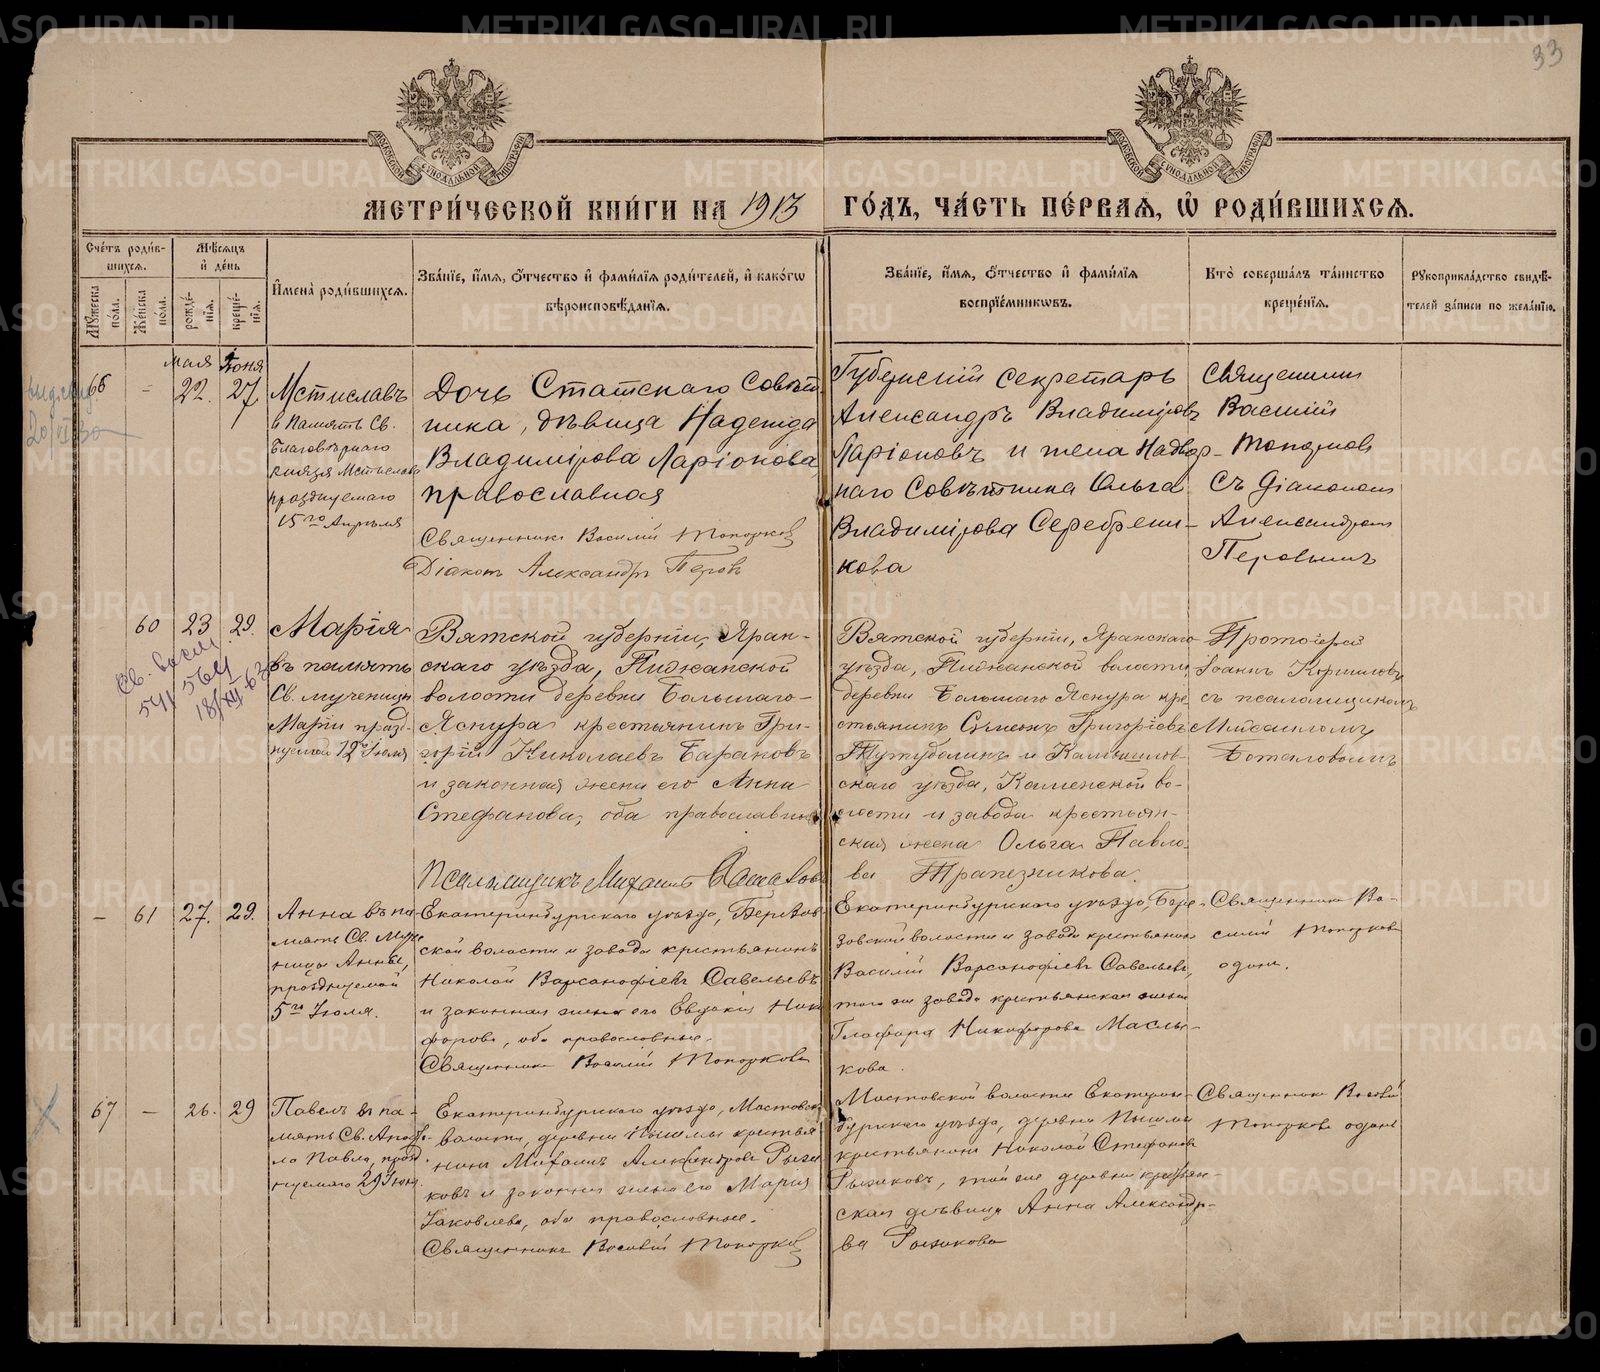 33
МЕТРИ́ЧЕСКОЙ КНИ́ГИ НА 1913 ГО́ДЪ, ЧА́СТЬ ПЕ́РВАѦ, Ѡ РОДИ́ВШИХСѦ.
Сче́тъ роди́в-
шихсѧ.
Мѣ́сѧцъ
и де́нь
Му́жеска
по́ла.
Же́нска
по́ла.
рожде́-
нїѧ.
креще́-
нїѧ.
Имена̀ роди́вшихсѧ.
Зва́нїе, и́мѧ, о́тчество и фами́лїѧ роди́телей, и како́гѡ
вѣроисповѣ́данїѧ.
Зва́нїе, и́мѧ, о́тчество и фами́лїѧ
воспрїе́мникѡвъ.
Кто̀ соверша́лъ та́инство
креще́нїѧ.
Рꙋкоприкла́дство свидѣ́-
телей за́писи по жела́нїю.
мая Іюня
66 - 22. 27.
Мстиславъ
в память Св.
Благовѣрнаго
князя Мстислава
празднуемаго
15го Апрѣля
Дочь Статскаго Совѣт
ника, дѣвица Надежда
Владимірова Ларіонова
православная
Священникъ Василій Топорковъ
Діаконъ Александръ Перовъ
Губернскій секретарь
Александръ Владиміровъ
Ларіоновъ и жена Надвор-
наго Совѣтника Ольга
Владимірова Серебрени-
кова
Священникъ
Василій
Топорковъ
съ діакономъ
Александромъ
Перовымъ
60 23 29.
Св. выд.
18/XII-63
Марія
въ память
Св. мученицы
Маріи празд-
нуемой 12го Іюля
Вятской губерніи, Яран-
скаго уѣзда, Пиджанской
волости деревни Большаго-
Яснура крестьянинъ Гри-
горій Николаевъ Барановъ
и законная жена его Анна
Стефанова, оба православные
Псаломщикъ Михаилъ
Вятской губерніи, Яранскаго
уѣзда, Пиджанской волости,
деревни Большаго Яснура кре
стьянинъ Симеонъ Григоріевъ
и Камышлов-
скаго уѣзда, Каменской во-
лости и завода крестьян-
ская жена Ольга Павло-
ва Трапезникова.
Протоіерей
Іоаннъ
съ псаломщикомъ
Михаиломъ
- 61 27. 29.
Анна въ па-
мять Св. Муче
ницы Анны,
празднуемой
5го Іюля.
Екатеринбургскаго уѣзда, Березов
ской волости и завода крестьянинъ
Николай Варсанофіевъ Савельевъ
и законная жена его Евдокія Ники
форова, оба православные.
Священникъ Василій Топорковъ
Екатеринбургскаго уѣзда, Бере-
зовской волости и завода крестьянинъ
Василій Варсанофіевъ Савельевъ,
того же завода крестьянская жена
Глафира Никифорова Маслы-
кова.
Священникъ Ва-
силій Топорковъ
одинъ.
67 - 26. 29
Павелъ въ па-
мять Св. Апосто-
ла Павла, празд
нуемаго 29 Іюня.
Екатеринбургскаго уѣзда, Мостовской
волости, деревни Пышмы крестья
нинъ Михаилъ Александровъ Рыжи
ковъ и законная жена его Марія
Іаковлева, оба православные.
Священникъ Василій Топорковъ
Мостовской волости Екатерин-
бургскаго уѣзда, деревни Пышмы
крестьянинъ Николай Стефановъ
Рыжиковъ, той же деревни крестьян-
ская дѣвица Анна Александро-
ва Рыжикова
Священникъ Василій
Топорковъ одинъ
METRIKI.GASO-URAL.RU